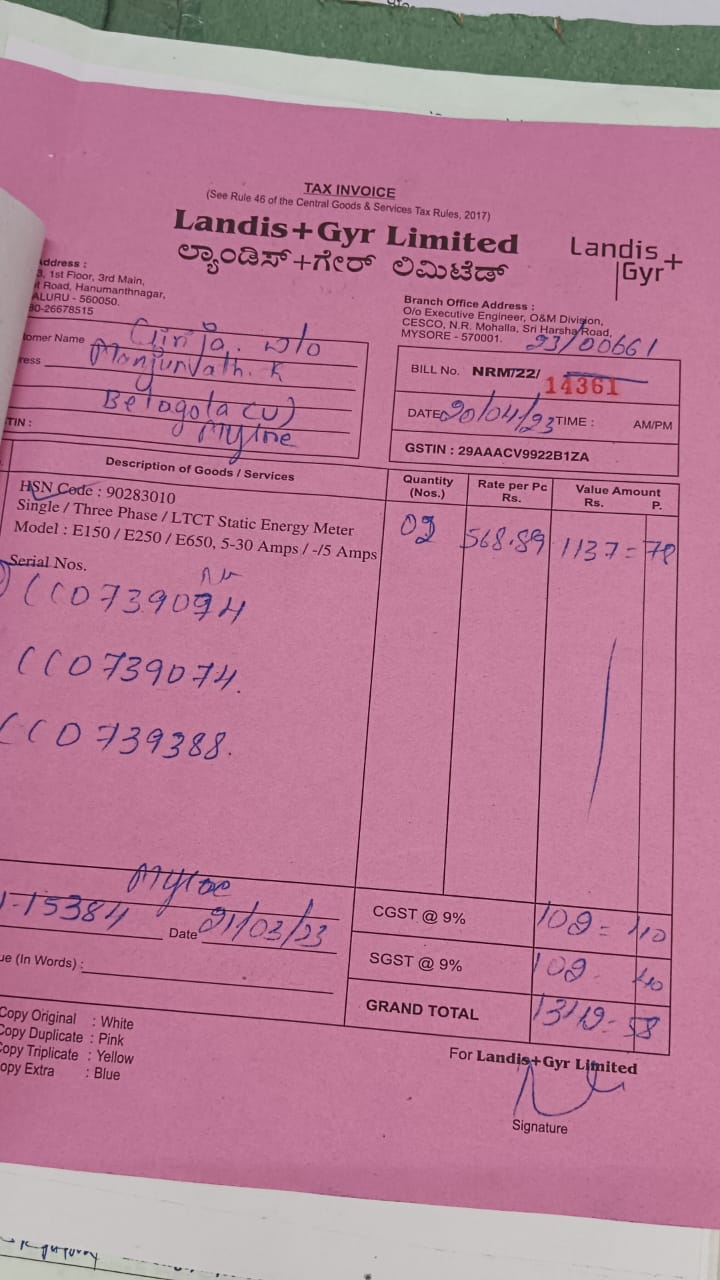 TAX INVOICE
(See Rule 46 of the Central Goods & Services Tax Rules, 2017)
Landis+Gyr Limited
ಲ್ಯಾಂಡಿಸ್+ಗೇರ್ ಲಿಮಿಟೆಡ್
Landis+
Gyr
ddress :
3, 1st Floor, 3rd Main,
Road, Hanumanthnagar,
ALURU - 560050.
80-26678515
Branch Office Address :
O/o Executive Engineer, O&M Division,
CESCO, N.R. Mohalla, Sri Harsha Road,
MYSORE - 570001.
23/00661
tomer Name Girija. w/o
ress Manjunath. K
Belagola (V)
Mysore
TIN :
BILL No. NRM/22/ 14361
DATE 20/04/23 TIME : AM/PM
GSTIN : 29AAACV9922B1ZA
Description of Goods / Services
Quantity (Nos.)
Rate per Pc Rs.
Value Amount Rs. P.
HSN Code : 90283010
Single / Three Phase / LTCT Static Energy Meter
Model : E150 / E250 / E650, 5-30 Amps / -/5 Amps
02 568.89 1137=78
Serial Nos.
CCO739074
CCO739388.
Mysore
-15384 Date 21/03/23
ue (In Words) :
CGST @ 9% 102=40
SGST @ 9% 102 40
GRAND TOTAL 1342=58
Copy Original : White
Copy Duplicate : Pink
Copy Triplicate : Yellow
opy Extra : Blue
For Landis+Gyr Limited
Signature